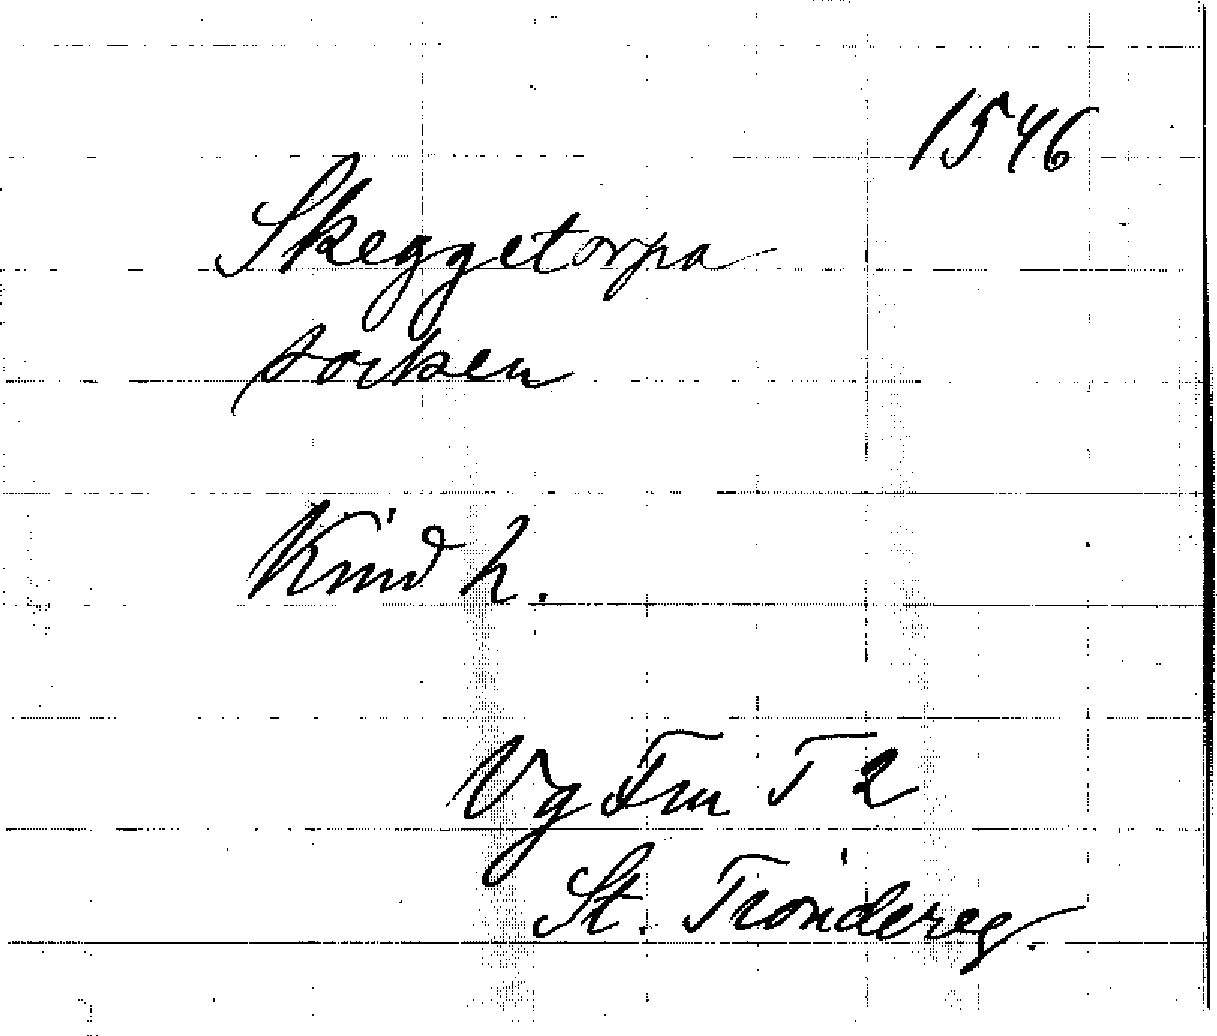 1546
Skeggetorpa
socken
Kind h.
Vg Fru T 2
St. Tiondereg.